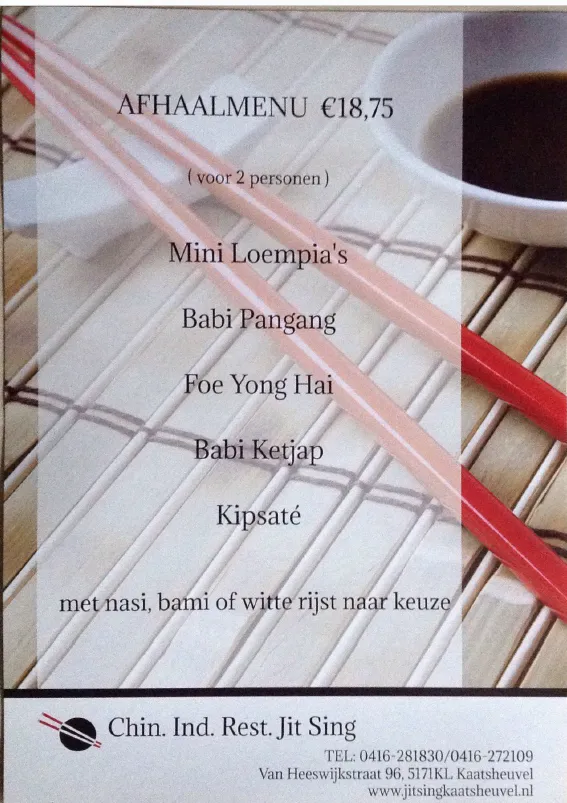 AFHAALMENU €18,75
( voor 2 personen )
Mini Loempia's
Babi Pangang
Foe Yong Hai
Babi Ketjap
Kipsaté
met nasi, bami of witte rijst naar keuze
Chin. Ind. Rest. Jit Sing
TEL: 0416-281830/0416-272109
Van Heeswijkstraat 96, 5171KL Kaatsheuvel
www.jitsingkaatsheuvel.nl